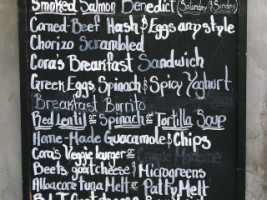 Smoked Salmon Benedict (Saturday & Sunday)
Corned-Beef Hash & Eggs any style
Chorizo Scrambled
Cora's Breakfast Sandwich
Greek Eggs, Spinach & Spicy Yoghurt
Breakfast Burrito
Red Lentil & Spinach & Tortilla Soup
Home-Made Guacamole & Chips
Cora's Veggie burger
Beets, goat cheese & Microgreens
Albacore Tuna Melt & Patty Melt
B.L.T.